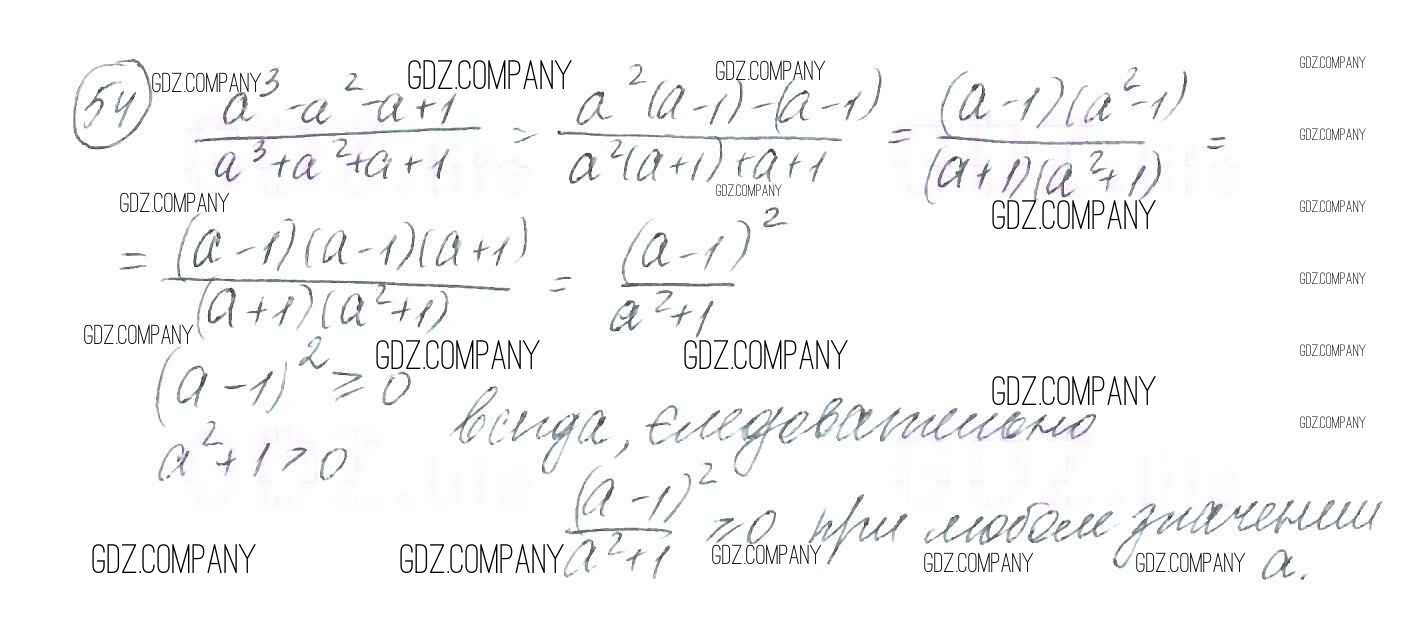 54 a³-a²-a+1 / a³+a²+a+1 = a²(a-1)-(a-1) / a²(a+1)+a+1 = (a-1)(a²-1) / (a+1)(a²+1) =
= (a-1)(a-1)(a+1) / (a+1)(a²+1) = (a-1)² / a²+1
(a-1)² ≥ 0
a²+1 > 0 всегда, следовательно
(a-1)² / a²+1 ≥ 0 при любом значении
a.
GDZ.COMPANY GDZ.COMPANY GDZ.COMPANY GDZ.COMPANY
GDZ.COMPANY
GDZ.COMPANY
GDZ.COMPANY GDZ.COMPANY GDZ.COMPANY
GDZ.COMPANY
GDZ.COMPANY
GDZ.COMPANY GDZ.COMPANY GDZ.COMPANY GDZ.COMPANY
GDZ.COMPANY
GDZ.COMPANY
GDZ.COMPANY GDZ.COMPANY GDZ.COMPANY GDZ.COMPANY GDZ.COMPANY